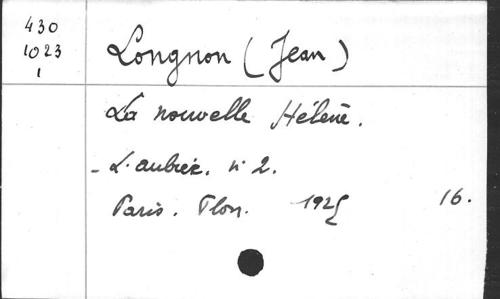 430
1023
1
Longnon (Jean)
La nouvelle Hélène.
- L'aubier. n° 2.
Paris. Plon. 1925 16.